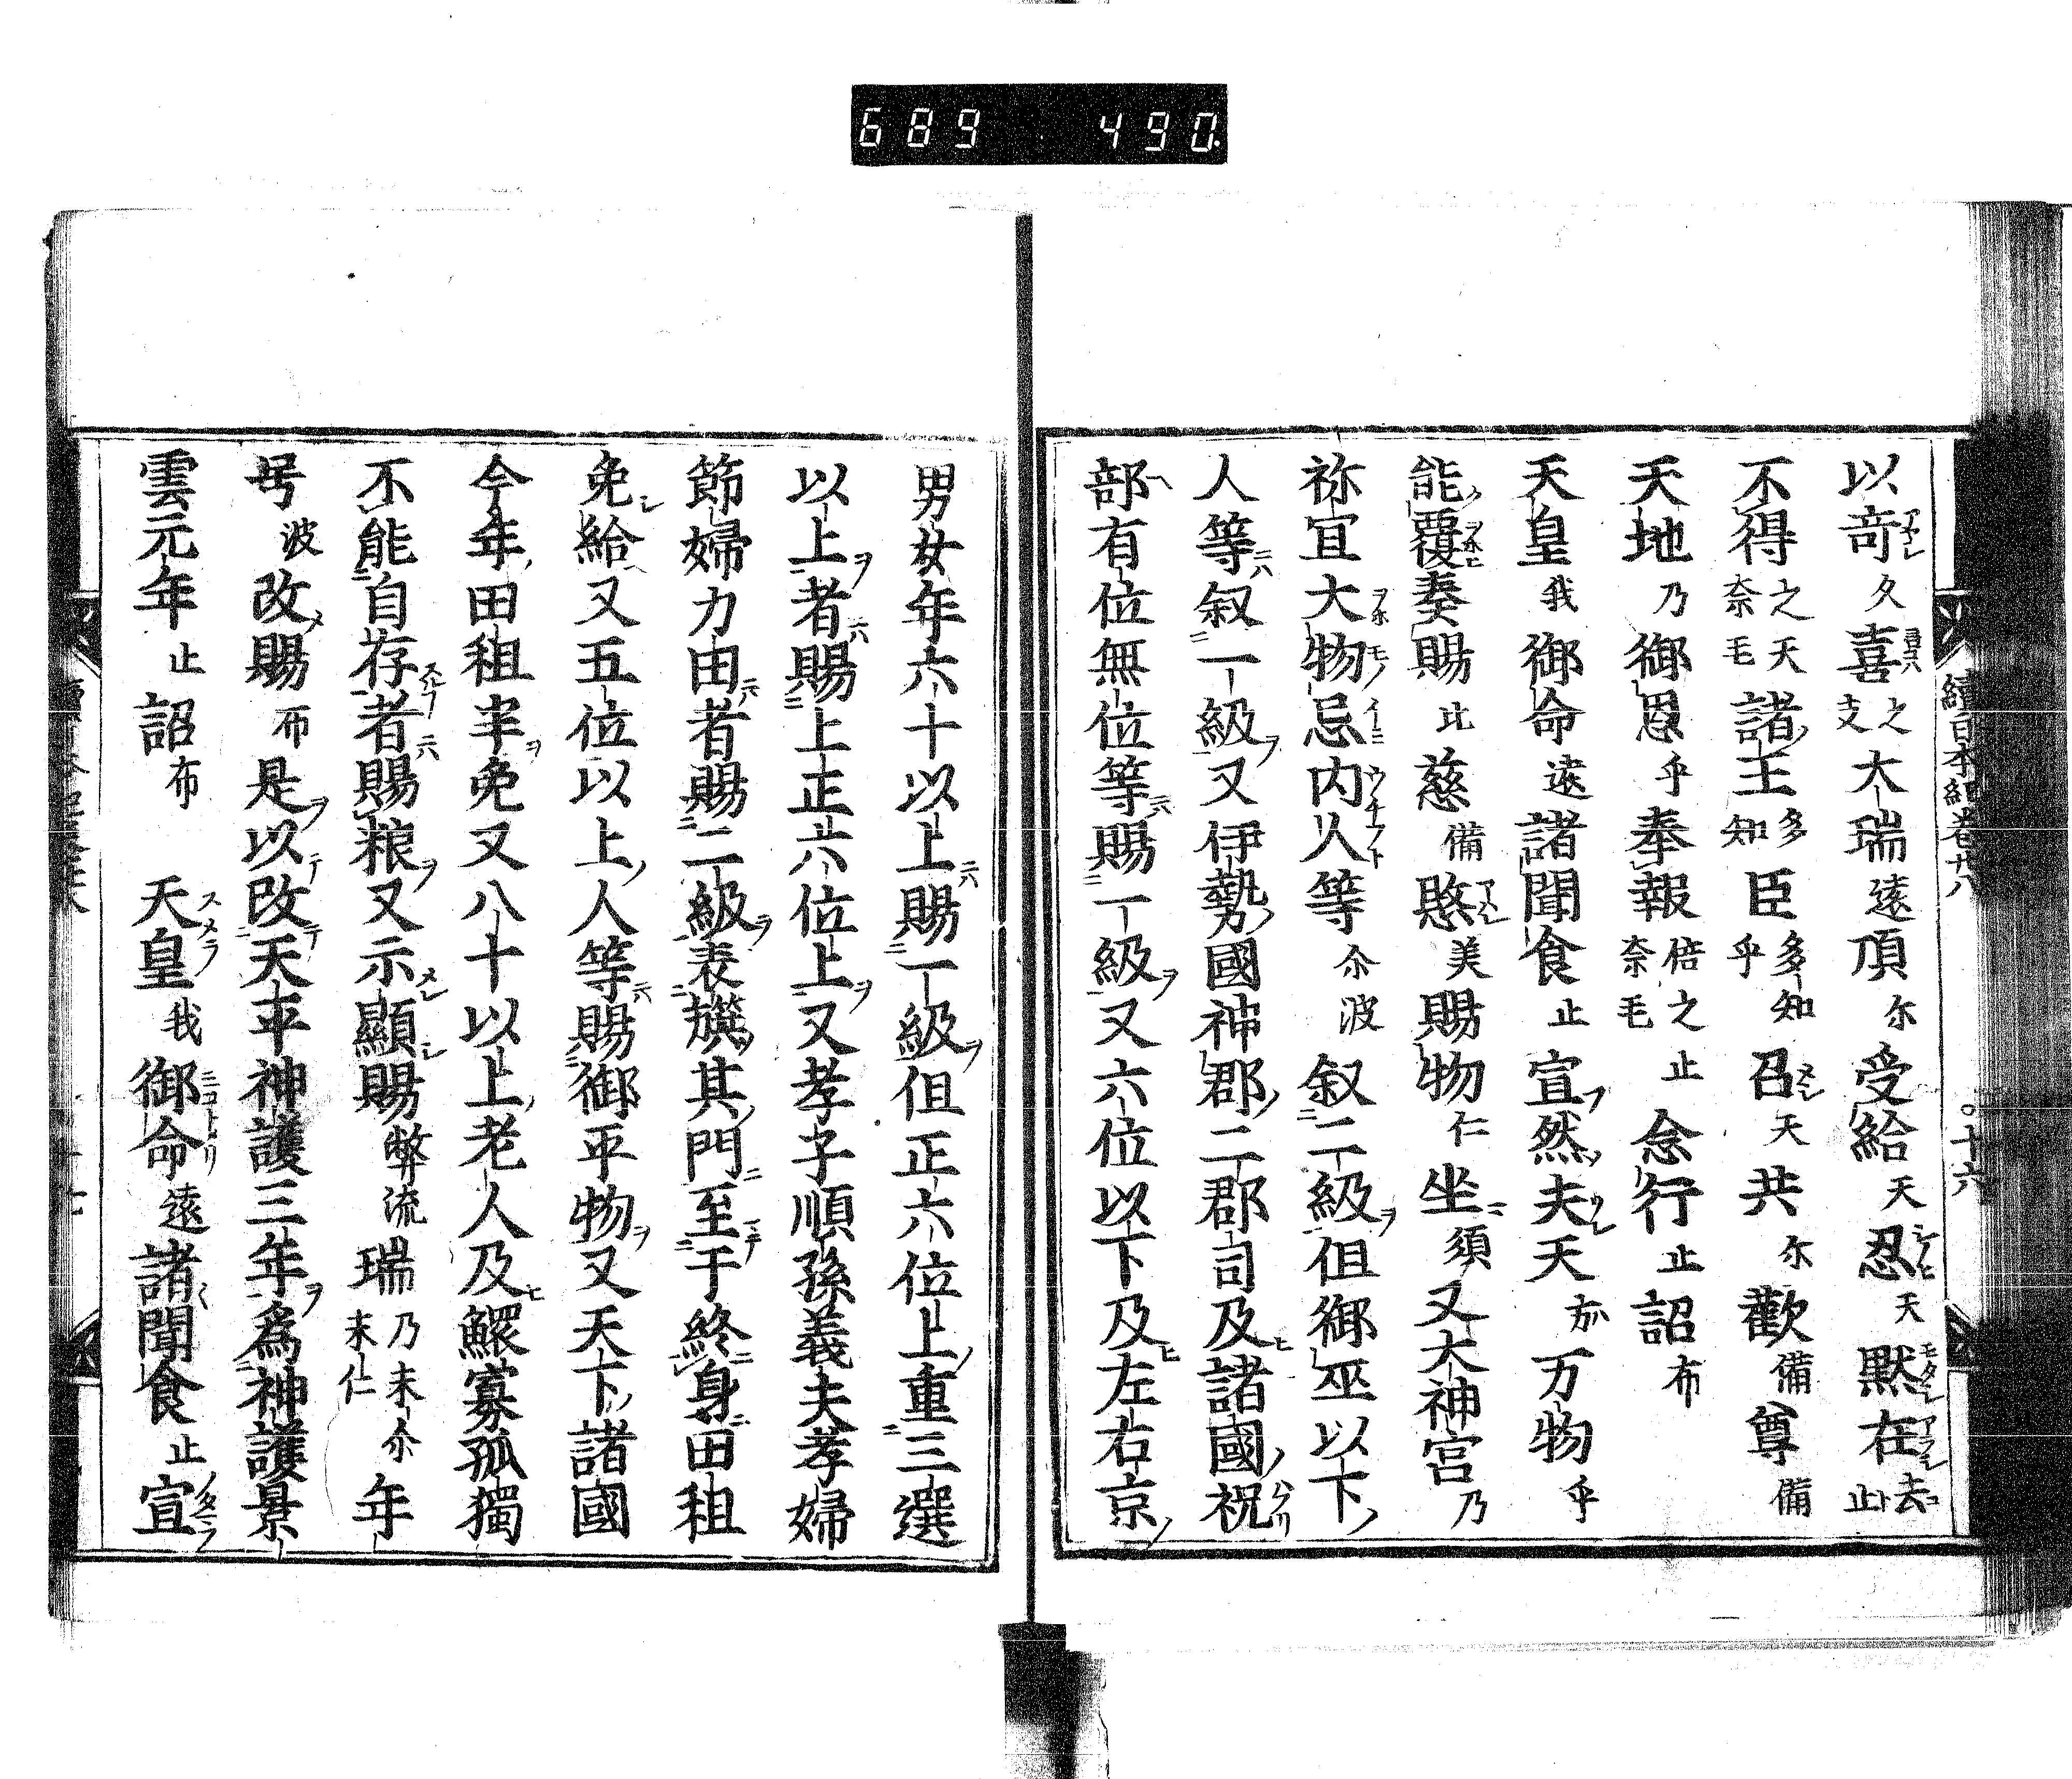 689 490
續日本紀卷廿八 ○十六
以竒久喜之支大瑞遠頂尓受給天忍天默在去止
不得之天奈毛諸王多知臣多知乎召天共尓歡備尊備
天地乃御恩乎奉報倍之奈毛止念行止詔布
天皇我御命遠諸聞食止宣然夫天方万物乎
能覆養賜比慈備愍美賜物仁坐須又大神宮乃
祢冝大物忌内人等尓波叙二級但御巫以下
人等叙一級又伊勢國神郡二郡司及諸國祝
部有位無位等賜一級又六位以下及左右京
男女年六十以上賜一級但正六位上重三選
以上者賜上正六位上又孝子順孫義夫孝婦
節婦力田者賜二級表旌其門至于終身田租
免給又五位以上人等賜御手物又天下諸國
今年田租半免又八十以上老人及鰥寡孤獨
不能自存者賜粮又示顯賜弊流瑞乃末尓末仁年
号波改賜布是以改天平神護三年爲神護景
雲元年止詔布天皇我御命遠諸聞食止宣